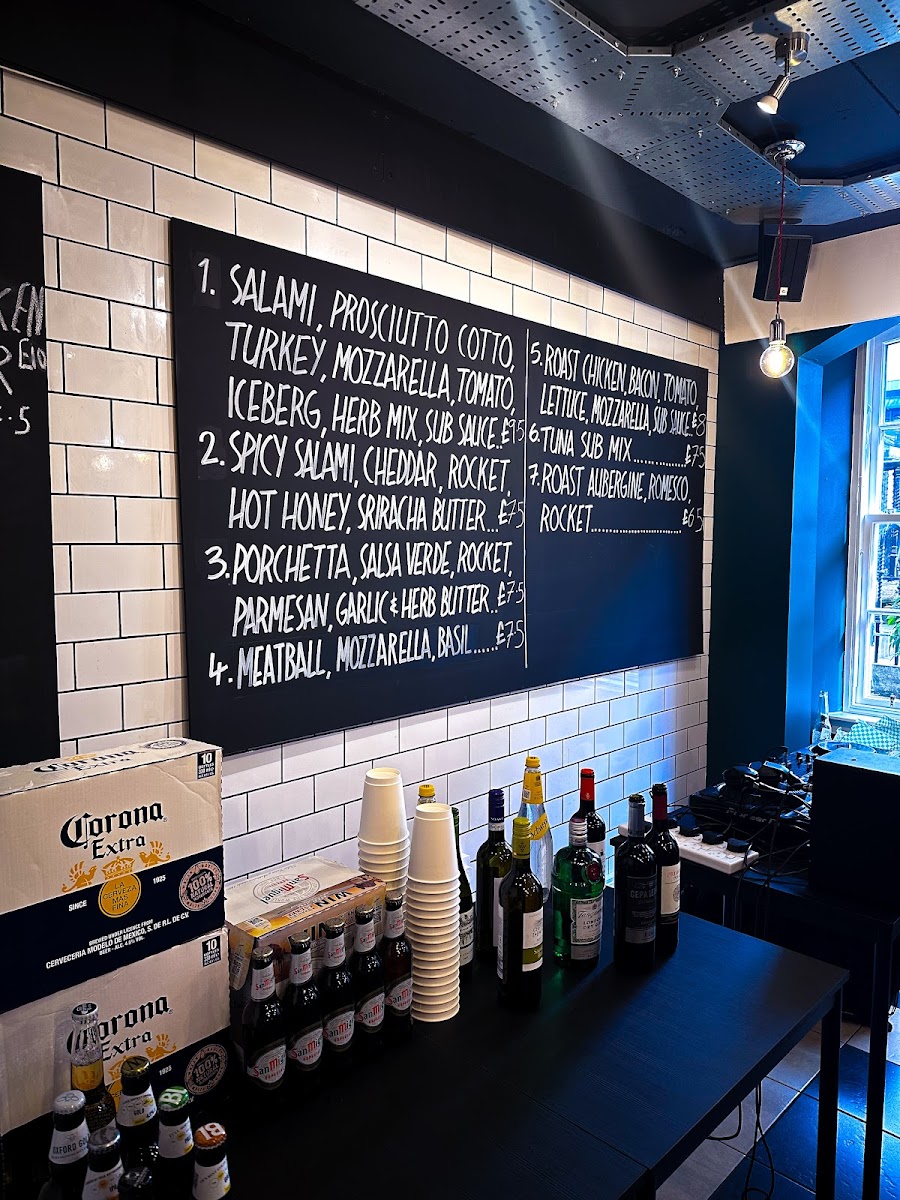 1. SALAMI, PROSCIUTTO COTTO,
TURKEY, MOZZARELLA, TOMATO,
ICEBERG, HERB MIX, SUB SAUCE..£9.5
2. SPICY SALAMI, CHEDDAR, ROCKET,
HOT HONEY, SRIRACHA BUTTER...£7.5
3. PORCHETTA, SALSA VERDE, ROCKET,
PARMESAN, GARLIC & HERB BUTTER..£7.5
4. MEATBALL, MOZZARELLA, BASIL......£7.5
5. ROAST CHICKEN, BACON, TOMATO,
LETTUCE, MOZZARELLA, SUB SAUCE.£8
6. TUNA SUB MIX..............£7.5
7. ROAST AUBERGINE, ROMESCO,
ROCKET.........................£6.5
Corona
Extra
LA
CERVEZA
MAS
FINA
SINCE
1925
BREWED UNDER LICENCE FROM
CERVECERIA MODELO DE MEXICO, S. DE R.L. DE C.V.
BEER - ALC. 4.5% VOL.
10
100%
Corona
Extra
1925
10
100%
San Miguel
WIN
San Miguel
San Miguel
San Miguel
San Miguel
OXFORD
18
CEPA